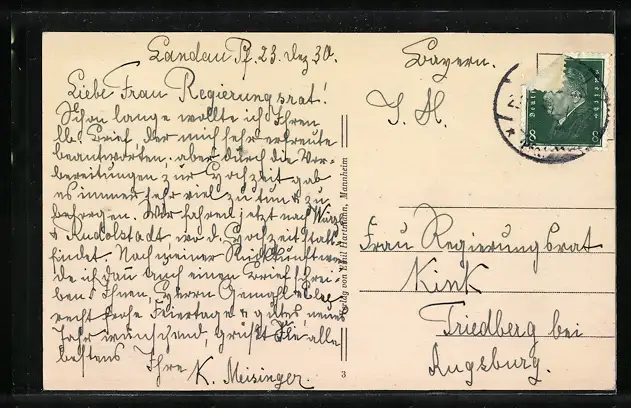 Landau Pf. 23. Dez 30.
Liebe Frau Regierungsrat!
Schon lange wollte ich Ihren
lb. Brief, der mich sehr erfreute
beantworten, aber durch die Vor-
bereitungen zur Hochzeit gab
es immer sehr viel zu tun & zu
besorgen. Wir fahren jetzt nach
Rudolstadt wo d. Hochzeit statt-
findet. Nach meiner Rückkunft wer-
de ich dann auch einen Brief schrei-
ben. Ihnen, Herrn Gemahl
recht frohe Feiertage & gutes neues
Jahr wünschend, grüßt Sie alle
bestens Ihre
K. Meisinger
Verlag von Emil Hartmann, Mannheim
3
Bayern.
S. H.
Frau Regierungsrat
Kink
Friedberg bei
Augsburg.
8 8